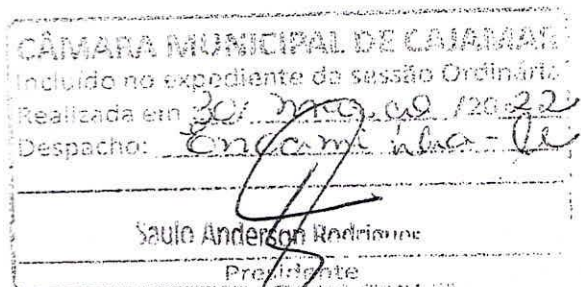 CÂMARA MUNICIPAL DE CAJAMAR
Incluído no expediente da sessão Ordinária
Realizada em 30/ março /2022
Despacho: Encaminha-se
Saulo Anderson Rodrigues
Presidente